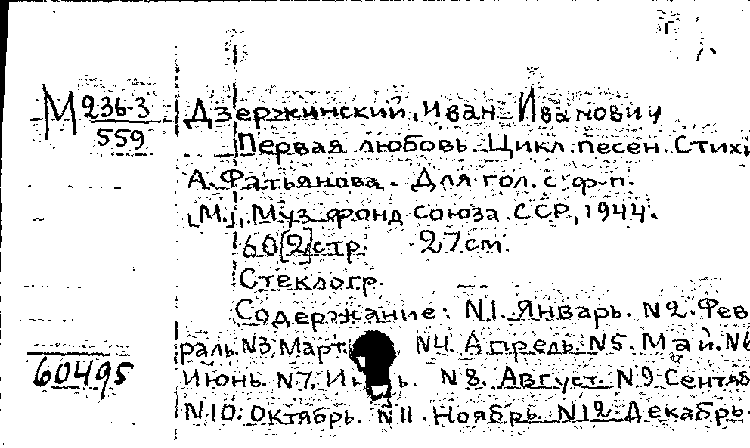 М 236-3
559
Дзержинский, Иван Иванович
Первая любовь. Цикл песен. Стихи
А. Фатьянова. Для гол. с ф-п.
[М.], Муз. фонд Союза ССР, 1944.
60[2] стр. 27 см.
Стеклогр.
Содержание: N1. Январь. N2. Фев
раль. N3. Март N4. Апрель. N5. Май. N6
Июнь. N7. N8. Август. N9. Сентяб
N10. Октябрь. N11. Ноябрь. N12. Декабрь.
60495